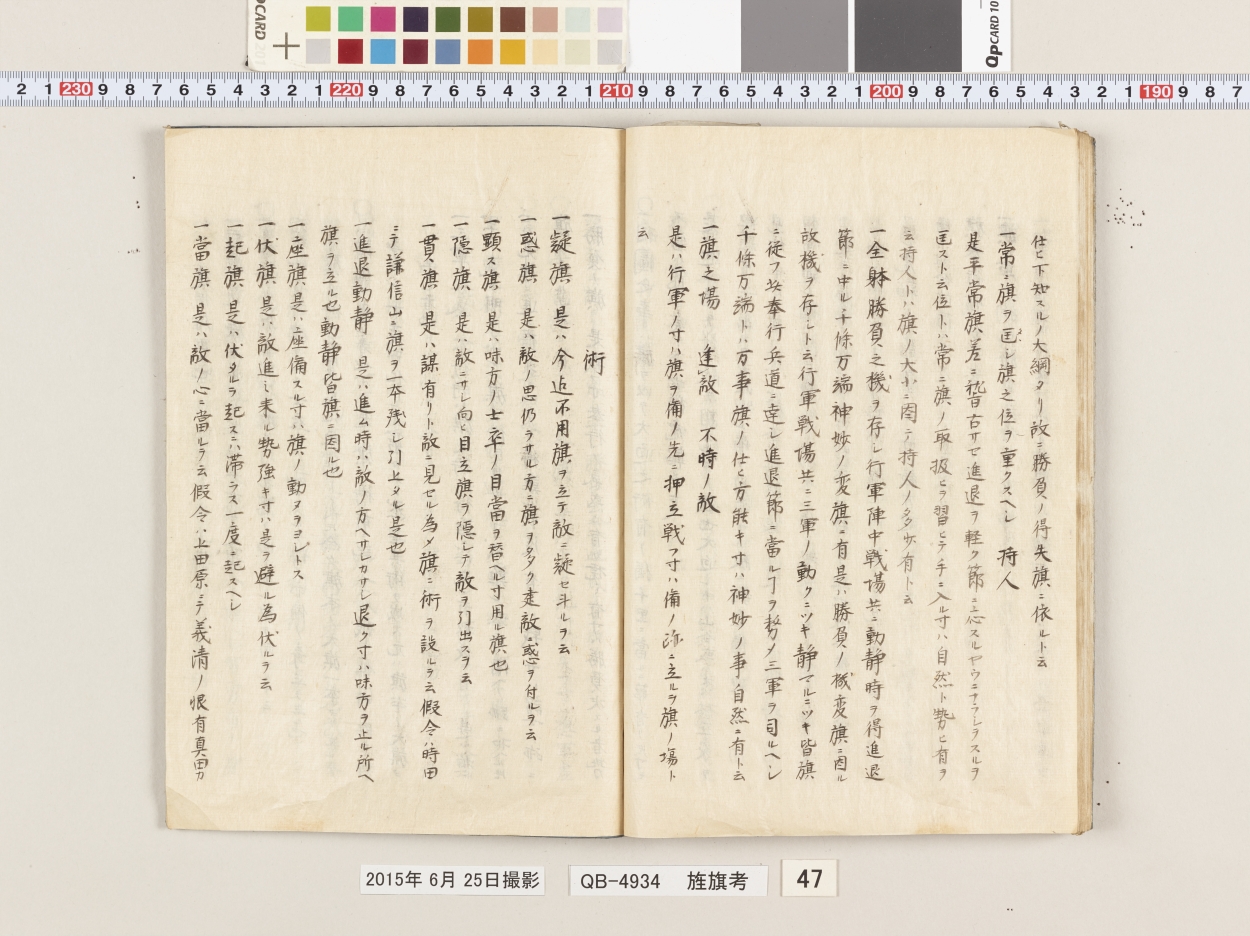 仕ヒ下知スルノ大綱タリ故ニ勝負ノ得失旗ニ依ルト云
一常ニ旗ヲ匡シ旗之位ヲ重クスヘシ 持人
是平常旗差ニ稽古サセ進退ヲ軽ク節ニ応スルヤウニナラシヲスルヲ
匡スト云位トハ常ニ旗ノ取扱ヒヲ習ヒテ手ニ入ル寸ハ自然ト勢ヒ有ヲ
云持人トハ旗ノ大小ニ因テ持人ノ多少有ト云
一全躰勝負之機ヲ存シ行軍陣中戦場共ニ動静時ヲ得進退
節ニ中ル千條万端神妙ノ変旗ニ有是ハ勝負ノ機変旗ニ因ル
故機ヲ存シト云行軍戦場共ニ三軍ノ動クニツキ静マルニツキ皆旗
ニ従フ故奉行兵道ニ達シ進退節ニ當ル丁ヲ努メ三軍ヲ司ルヘシ
千條万端トハ万事旗ノ仕ヒ方能キ寸ハ神妙ノ事自然ニ有ト云
一旗之場 逢敵 不時ノ敵
是ハ行軍ノ寸ハ旗ヲ備ノ先ニ押立戦フ寸ハ備ノ ニ立ルヲ旗ノ場ト
云
術
一疑旗 是ハ今迄不用旗ヲ立テ敵ニ疑セ斗ルヲ云
一惑旗 是ハ敵ノ思仍ラサル方ニ旗ヲ多ク建敵ニ惑ヲ付ルヲ云
一顕ス旗 是ハ味方ノ士卒ノ目當ヲ替ヘル寸用ル旗也
一隠旗 是ハ敵ニサシ向ヒ目立旗ヲ隠シテ敵ヲ引出スヲ云
一貫旗 是ハ謀有リト敵ニ見セル為メ旗ニ術ヲ設ルヲ云假令ハ時田
ニテ謙信山ニ旗ヲ一本残シ引上タル是也
一進退動静 是ハ進ム時ハ敵ノ方ヘサシカサシ退ク寸ハ味方ヲ止ル所ヘ
旗ヲ立ル也動静皆旗ニ因ル也
一座旗 是ハ座備スル寸ハ旗ノ動ヌヲヨシトス
一伏旗 是ハ敵進ミ来ル勢強キ寸ハ是ヲ避ル為伏ルヲ云
一起旗 是ハ伏タルヲ起スニハ滞ラス一度ニ起スヘシ
一當旗 是ハ敵ノ心ニ當ルヲ云假令ハ上田原ニテ義清ノ恨有真田カ
2015年 6月 25日撮影
QB-4934 旌旗考
47